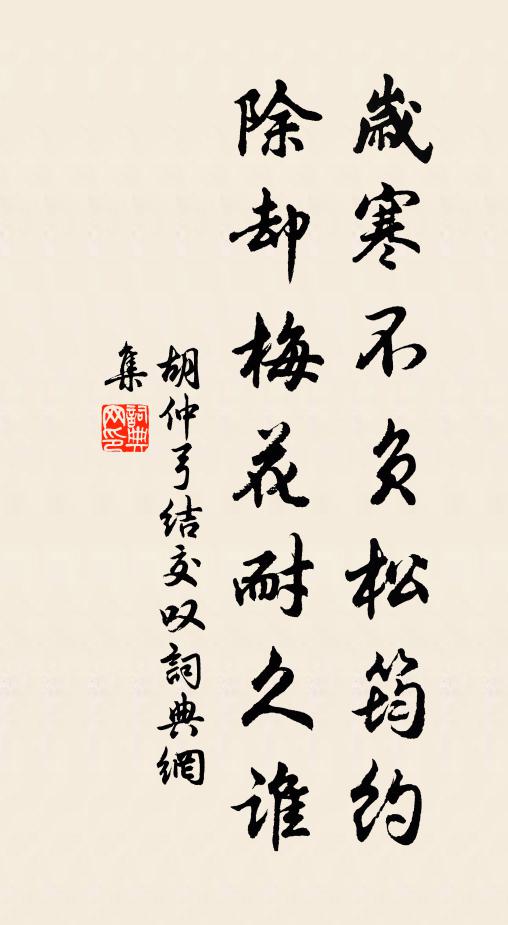 歲寒不負松筠約
除却梅花耐久誰
胡仲弓結交叹詞典網
集
詞典
网印